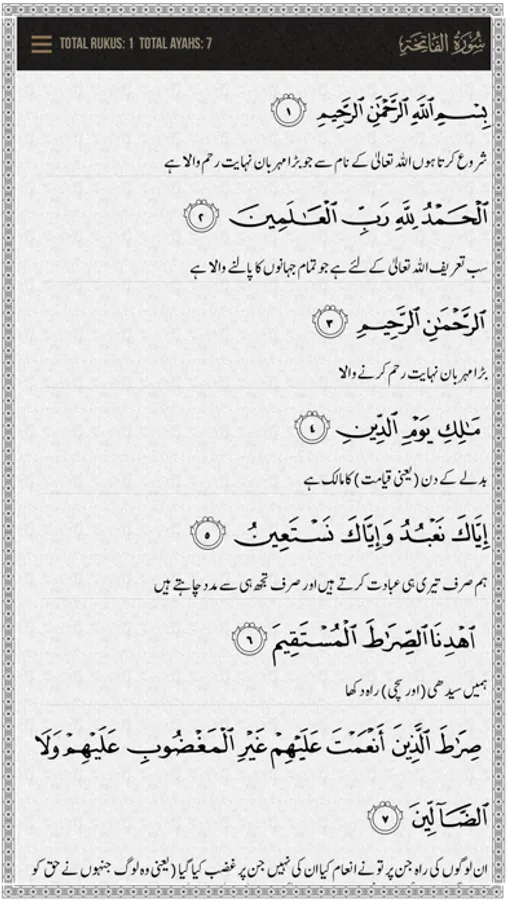 TOTAL RUKUS: 1 TOTAL AYAHS: 7 سُورَةُ الفَاتِحَة
بِسْمِ اللَّهِ الرَّحْمَٰنِ الرَّحِيمِ ١
شروع کرتا ہوں اللہ تعالیٰ کے نام سے جو بڑا مہربان نہایت رحم والا ہے
الْحَمْدُ لِلَّهِ رَبِّ الْعَالَمِينَ ٢
سب تعریف اللہ تعالیٰ کے لئے ہے جو تمام جہانوں کا پالنے والا ہے
الرَّحْمَٰنِ الرَّحِيمِ ٣
بڑا مہربان نہایت رحم کرنے والا
مَالِكِ يَوْمِ الدِّينِ ٤
بدلے کے دن (یعنی قیامت) کا مالک ہے
إِيَّاكَ نَعْبُدُ وَإِيَّاكَ نَسْتَعِينُ ٥
ہم صرف تیری ہی عبادت کرتے ہیں اور صرف تجھ ہی سے مدد چاہتے ہیں
اهْدِنَا الصِّرَاطَ الْمُسْتَقِيمَ ٦
ہمیں سیدھی (اور سچی) راہ دکھا
صِرَاطَ الَّذِينَ أَنْعَمْتَ عَلَيْهِمْ غَيْرِ الْمَغْضُوبِ عَلَيْهِمْ وَلَا
الضَّالِّينَ ٧
ان لوگوں کی راہ جن پر تو نے انعام کیا ان کی نہیں جن پر غضب کیا گیا (یعنی وہ لوگ جنہوں نے حق کو